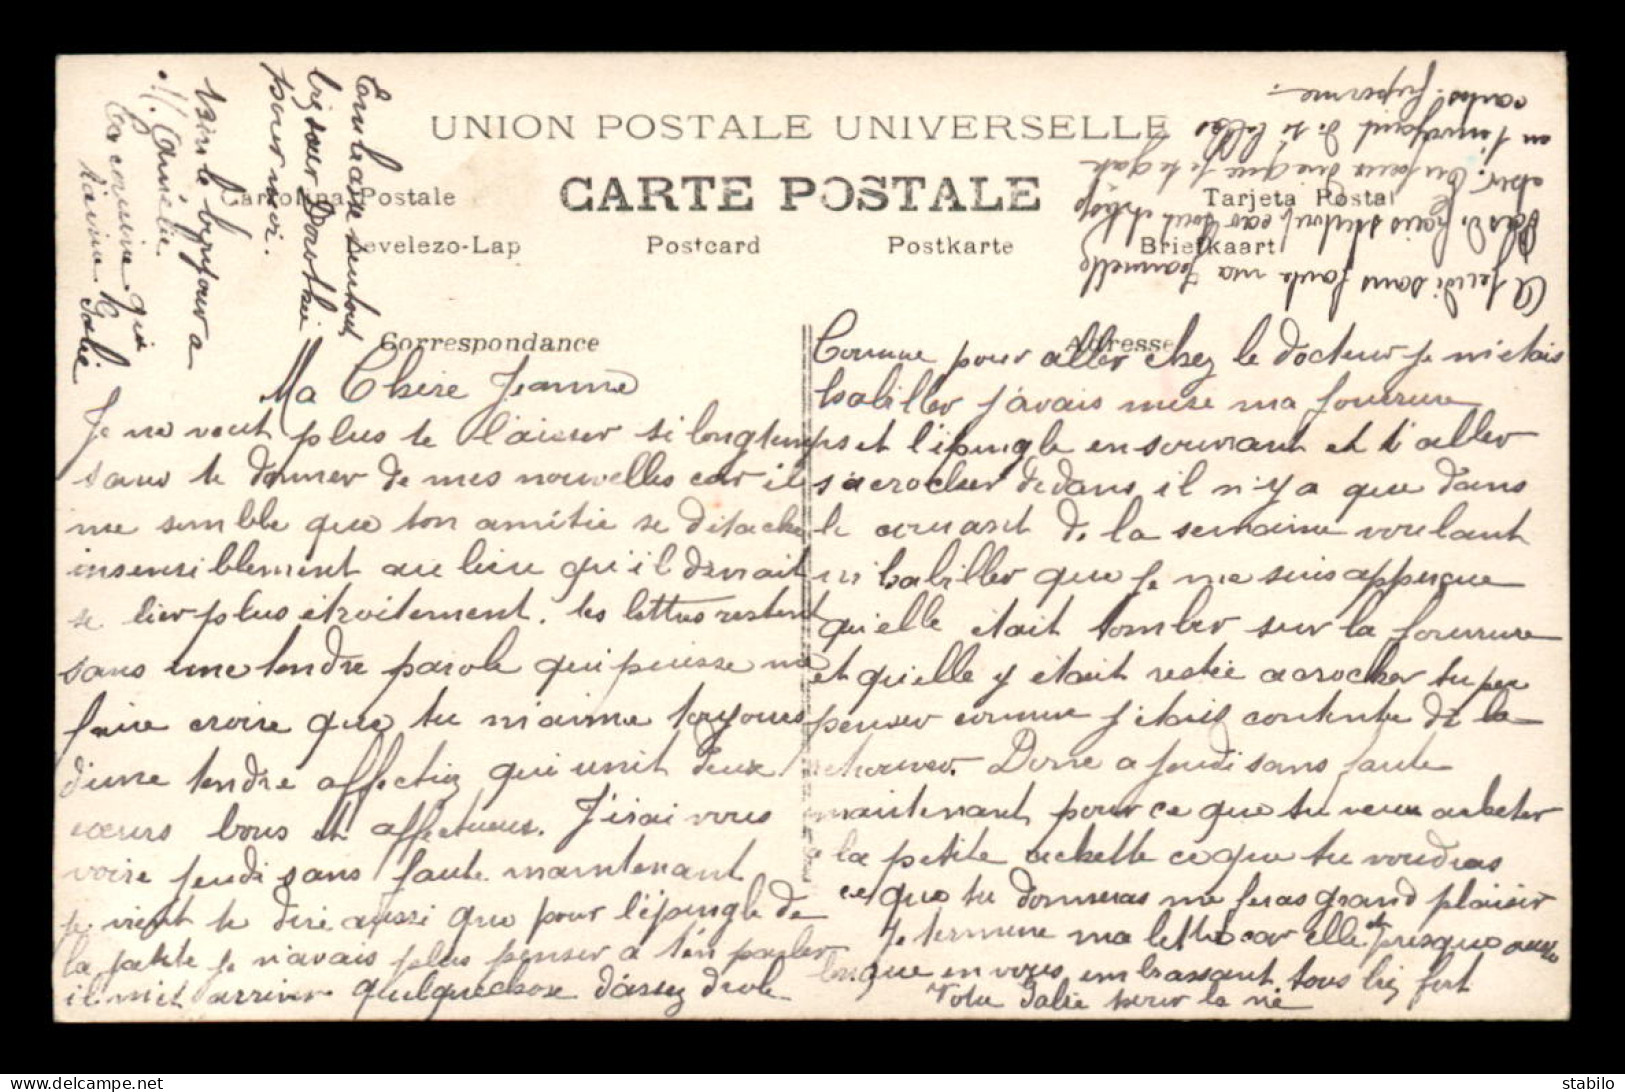 UNION POSTALE UNIVERSELLE
CARTE POSTALE
Cartolina Postale
Tarjeta Postal
Levelezo-Lap
Postcard
Postkarte
Briefkaart
Correspondance
Adresse
Ma Chère Jeanne
Je ne veut plus te laisser si longtemps
sans te donner de mes nouvelles car il
me semble que ton amitie se détache
insensiblement au lieu qu'il devrait
se lier plus étroitement. tes lettres restent
sans une tendre parole qui puisse me
faire croire que tu m'aime toujours
d'une tendre affection qui unit deux
cœurs bons et affectueux. J'irai vous
voire jeudi sans faute maintenant
je vient te dire aussi que pour l'épingle de
la petite je n'avais plus penser a t'en parler
il m'et arriver quelquechose d'assez drole
Comme pour aller chez le docteur je m'étais
habiller j'avais mise ma fourrure
et l'épingle en souvrant et t'aller
s'acrocher dedans il n'y a que dans
le courant de la semaine voulant
m'habiller que je me suis apperçue
qu'elle était tomber sur la fourrure
et qu'elle y était restée accrocher tu peu
penser comme j'étais contente de la
retrouver. Donc a jeudi sans faute
maintenant pour ce que tu veux acheter
a la petite achette ce que tu voudras
ce que tu donneras me feras grand plaisir
Je termine ma lettre car elle et presque aussi
longue en vous embrassant tous bien fort
Votre Galie pour la vie
A jeudi sans faute ma Jeannette
car tout
que je te
en t'envoyant de si belles
cartes.
Embrasse surtout
bien sœur Dorothée
pour moi.
Bien le bonjour a
M. Camélie.
Ta cousine qui
t'aime Galie